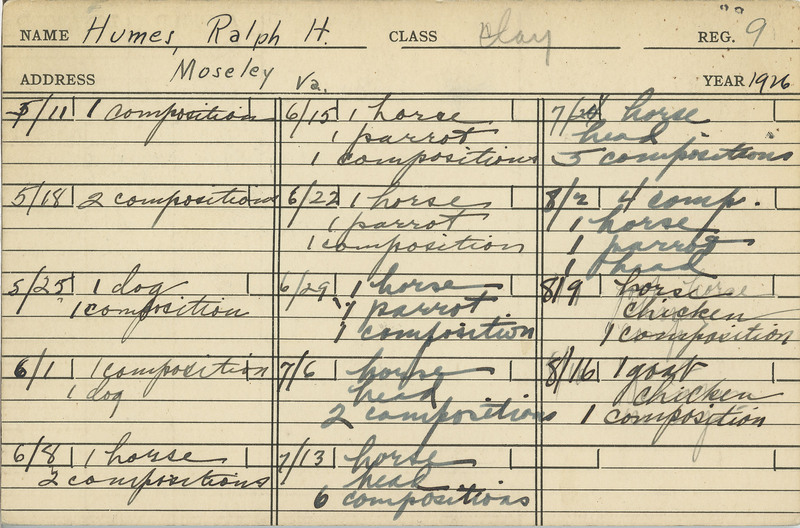 NAME Humes, Ralph H. CLASS Clay REG. 9
ADDRESS Moseley Va. YEAR 1926
5/11 1 composition
5/18 2 compositions
5/25 1 dog
1 composition
6/1 1 composition
1 dog
6/8 1 horse
2 compositions
6/15 1 horse
1 parrot
1 compositions
6/22 1 horse
1 parrot
1 composition
6/29 1 horse
1 parrot
1 composition
7/6 horse
head
2 compositions
7/13 horse
head
6 compositions
7/20 horse
head
5 compositions
8/2 4 comp.
1 horse
1 parrot
1 head
8/9 horse
chicken
1 composition
8/16 1 goat
chicken
1 composition